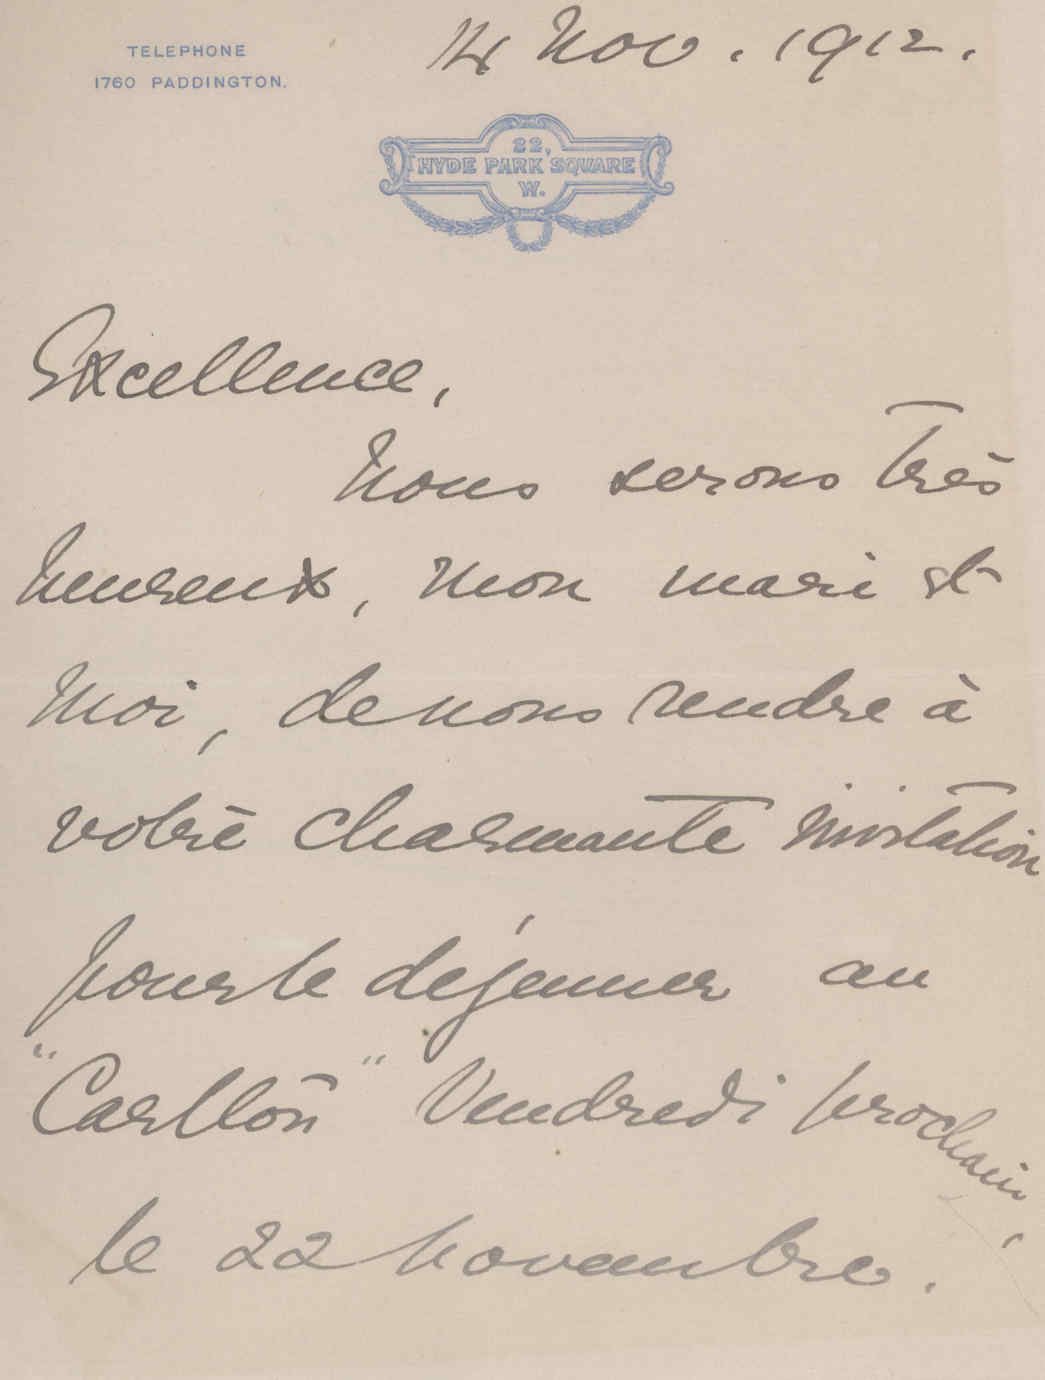 TELEPHONE
1760 PADDINGTON.
14 Nov. 1912.
22,
HYDE PARK SQUARE
W.
Excellence,
Nous serons très
heureux, mon mari et
moi, de nous rendre à
votre charmante invitation
pour le déjeuner au
"Carlton" Vendredi prochain,
le 22 novembre.